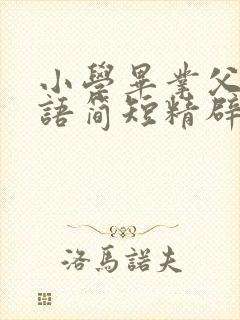 小學畢業父
語简短精辟
洛馬諾夫